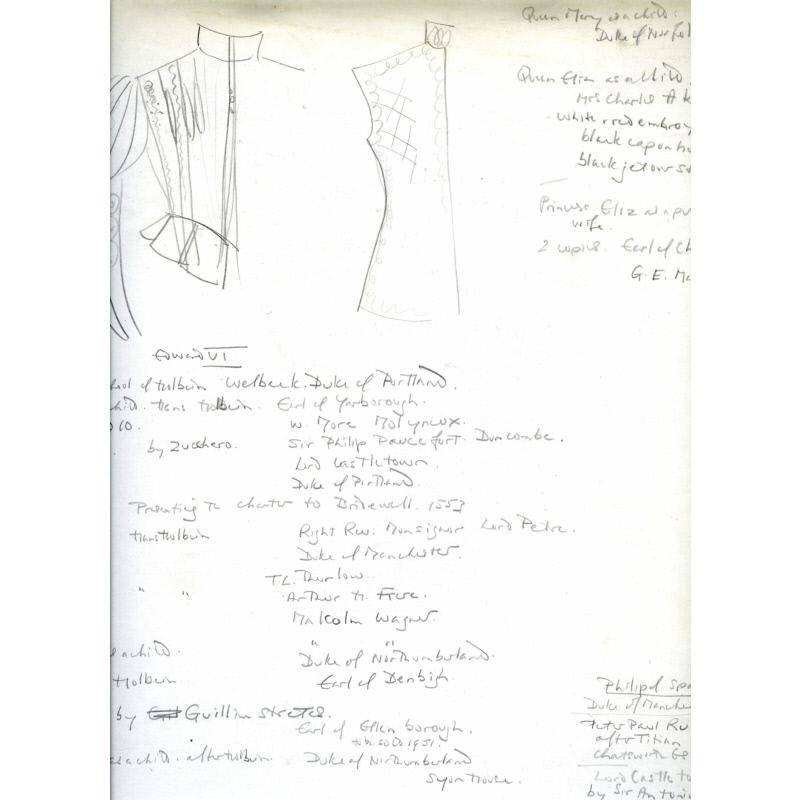 Queen Mary as a child.
Duke of Norfol
Queen Eliza as a child.
Mrs Charles A
white red embroy
black cap on
black jet over
Princess Eliz as a
wife.
2 copies. Earl of Ch
G. E. Ma
Edward VI
Holbein Welbeck. Duke of Portland.
child. trans Holbein. Earl of Yarborough.
W. More Molyneux.
by Zucchero. Sir Philip Pauncefort Duncombe.
Lord Castletown.
Duke of Portland
Presenting the charter to Bridewell. 1553
trans Holbein Right Rev: Monsignor Lord Petre.
Duke of Manchester.
T.L. Thurlow.
" " Arthur H. Frere.
Malcolm Wagner.
" "
as a child. Duke of Northumberland.
Holbein Earl of Denbigh.
by Guillim Stretes.
Earl of Ellenborough.
to be sold 1951.
as a child. after Holbein Duke of Northumberland
Syon House.
Philip of Spa
Duke of Manche
Peter Paul Ru
after Titian
Chatsworth
Lord Castleto
by Sir Antonio